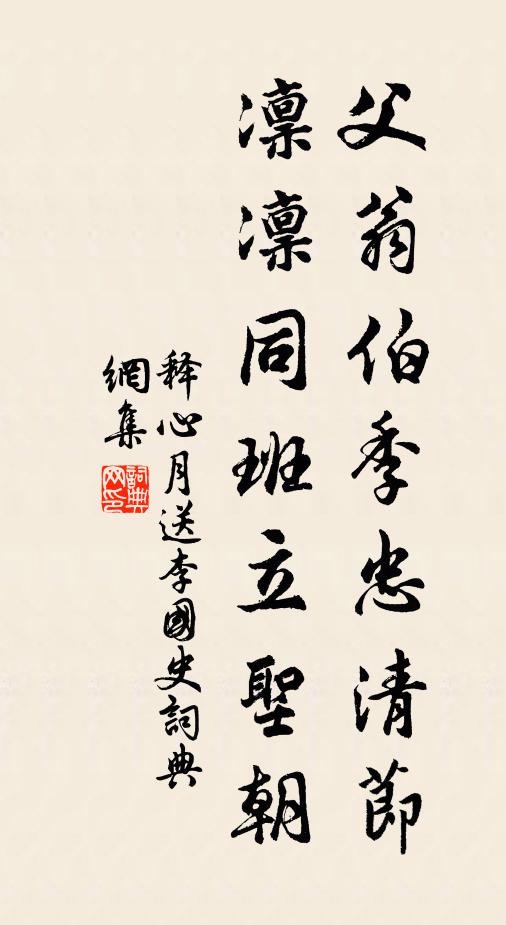 父翁伯季忠清節
凜凜同班立聖朝
释心月送李國史詞典
網集
詞典
网印